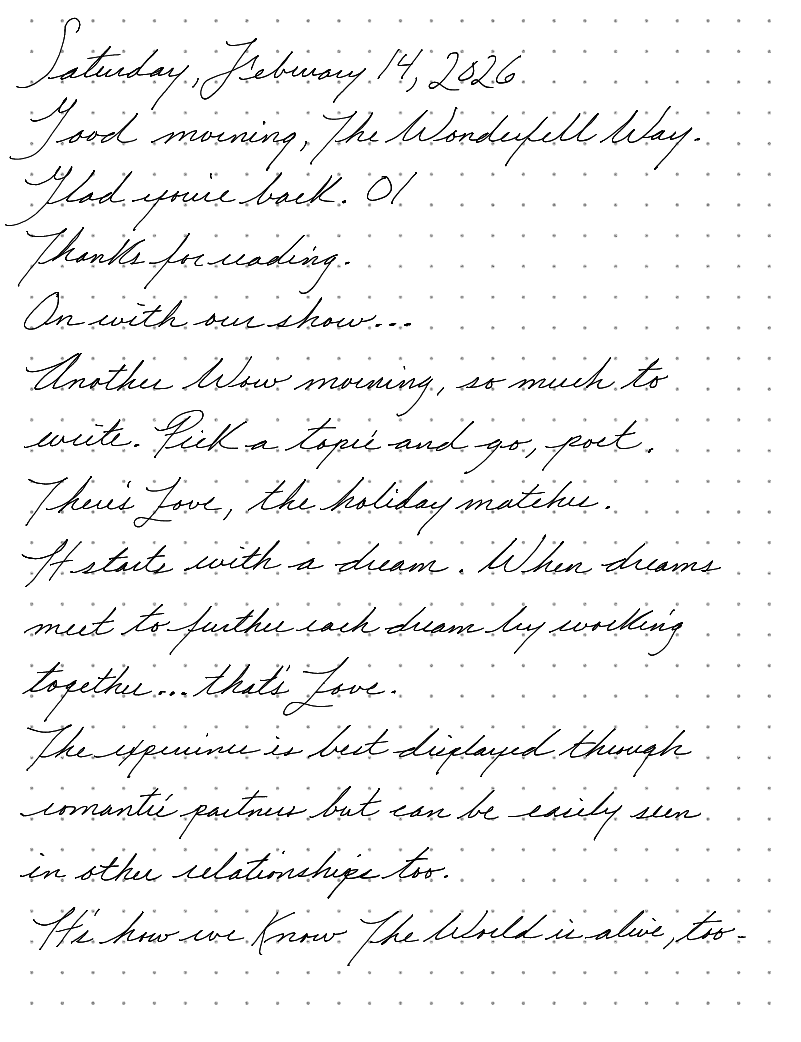 Saturday, February 14, 2026
Good morning, The Wonderfell Way.
Glad you're back. 01
Thanks for reading.
On with our show...
Another Wow morning, so much to
write. Pick a topic and go, poet.
There's Love, the holiday matches.
It starts with a dream. When dreams
meet to further each dream by working
together... that's Love.
The experience is best displayed through
romantic partners but can be easily seen
in other relationships too.
It's how we Know The World is alive, too-